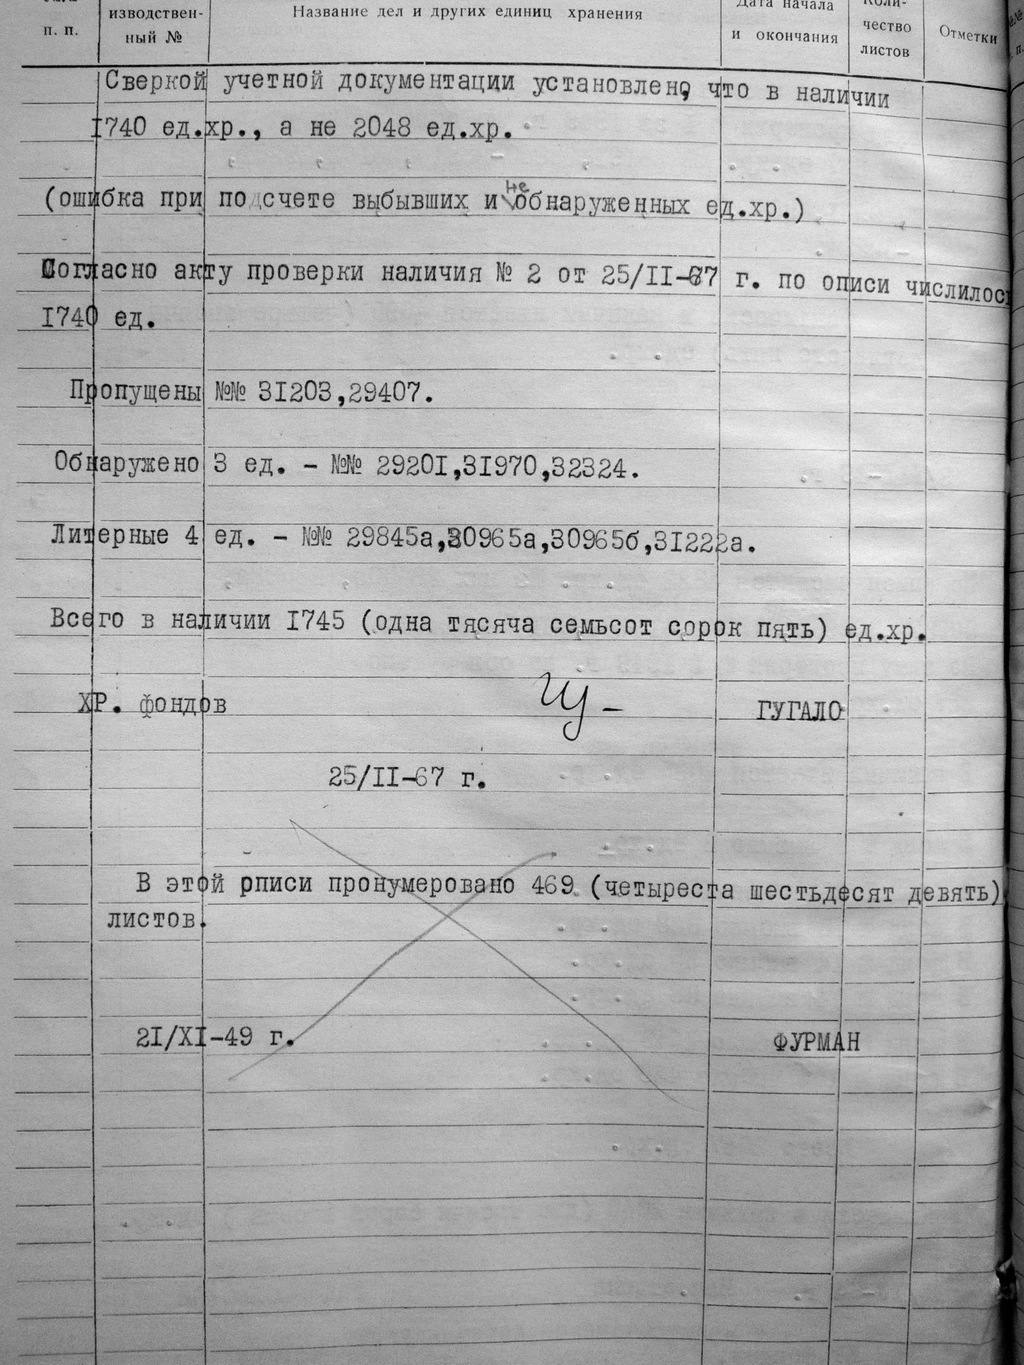 п. п.
изводствен-
ный №
Название дел и других единиц хранения
Дата начала
и окончания
Коли-
чество
листов
Отметки
Сверкой учетной документации установлено, что в наличии
I740 ед.хр., а не 2048 ед.хр.
не
(ошибка при подсчете выбывших и обнаруженных ед.хр.)
Согласно акту проверки наличия № 2 от 25/II-67 г. по описи числилос
I740 ед.
Пропущены №№ 3I203,29407.
Обнаружено 3 ед. - №№ 2920I,3I970,32324.
Литерные 4 ед. - №№ 29845а,30965а,30965б,3I222а.
Всего в наличии I745 (одна тясяча семьсот сорок пять) ед.хр.
ХР. фондов
ГУГАЛО
25/II-67 г.
В этой рписи пронумеровано 469 (четыреста шестьдесят девять)
листов.
2I/XI-49 г.
ФУРМАН